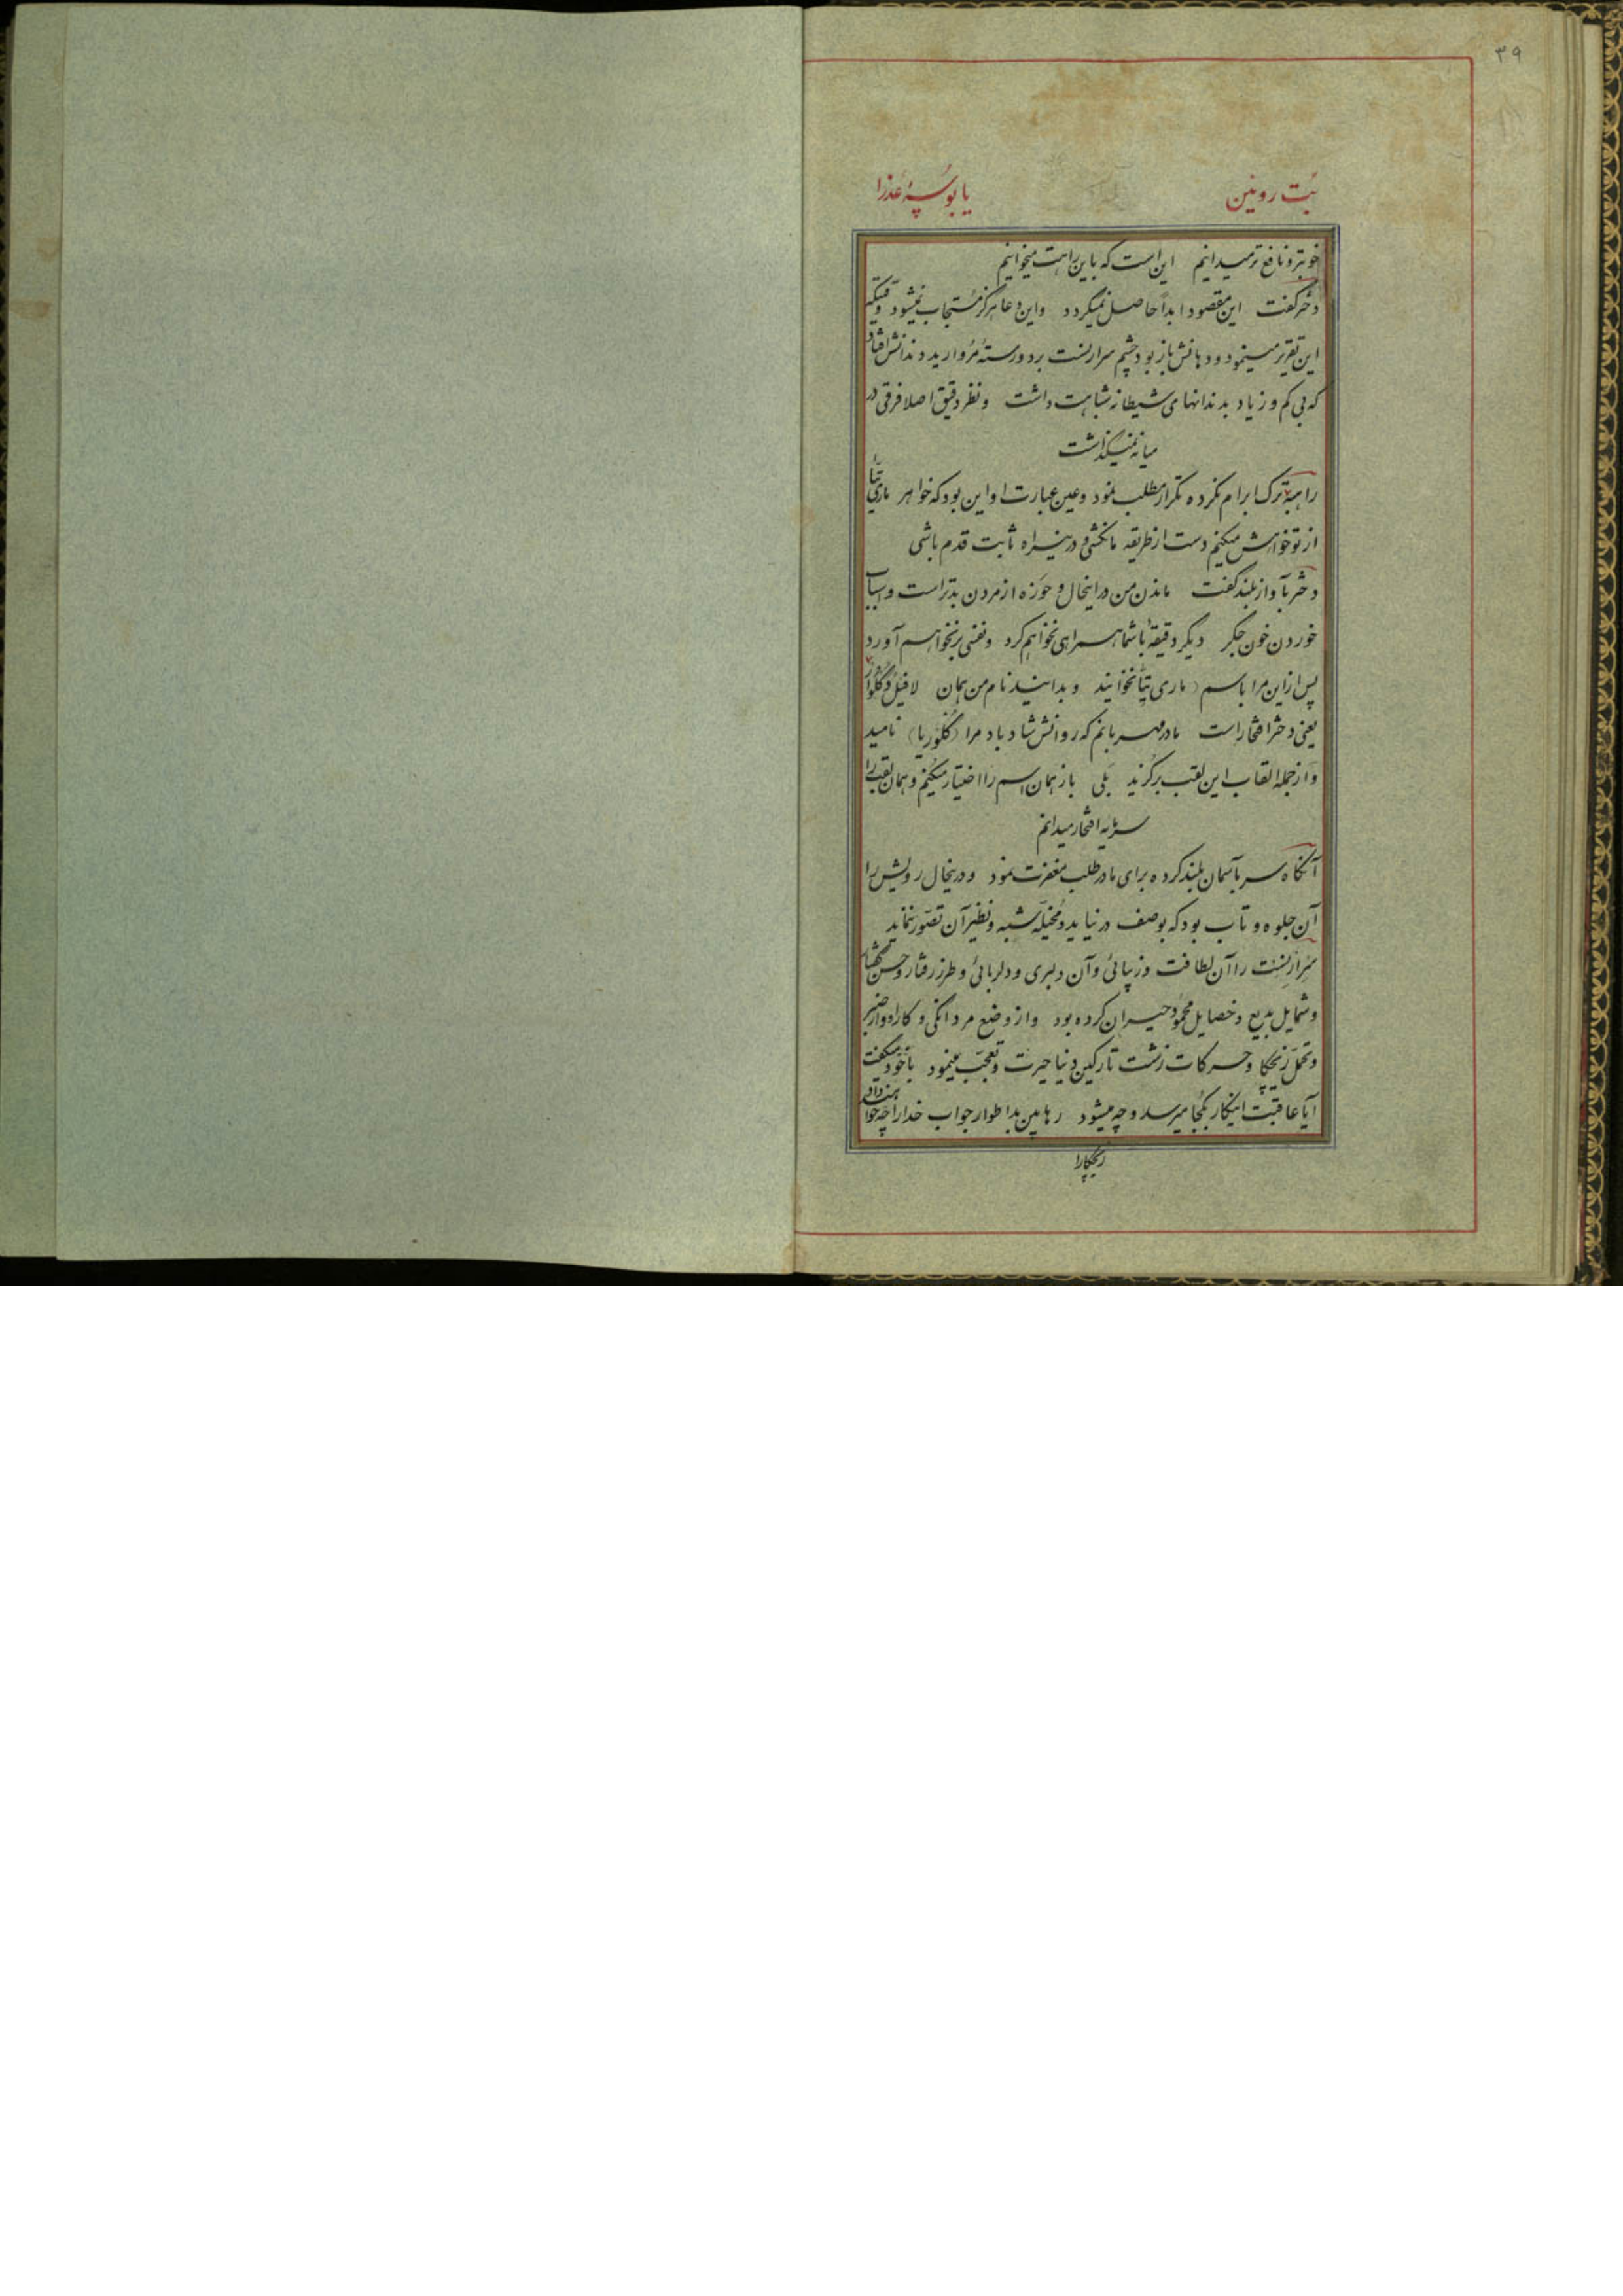 ۳۹
بُت روئین یا بوسهٔ عذرا
خوبتر و نافع تر میدانیم این است که باین راهت میخوانیم
دختر گفت این مقصود ابداً حاصل نمیگردد و این دعا هرگز مستجاب نمیشود وقتیکه
این تقریر مینمود و دهانش باز بود چشم سرارنست بر دو رسته مروارید دندانش افتاد
که بی کم و زیاد بدندانهای شیطانه شباهت داشت و نظر دقیق اصلا فرقی در
میانه نمیگذاشت
راهبه ترک ابرام نکرده تکرار مطلب نمود و عین عبارت او این بود که خواهر ماری تیتا
از تو خواهش میکنم دست از طریقه ما نکشی و درینراه ثابت قدم باشی
دختر بآواز بلند گفت ماندن من در اینحال و حوزه از مردن بدتر است و اسباب
خوردن خون جگر دیگر دقیقهٔ با شما همراهی نخواهم کرد و نفسی بر نخواهم آورد
پس از این مرا باسم (ماری تیتا) نخوانید و بدانید نام من همان لافیل دگلوار
یعنی دختر افتخار است مادر مهربانم که روانش شاد باد مرا (گلوریا) نامید
و از جمله القاب این لقب برگزید بلی باز همان اسم را اختیار میکنم و همان لقب را
سرمایه افتخار میدانم
آنگاه سر بآسمان بلند کرده برای مادر طلب مغفرت نمود و درینحال رویش را
آن جلوه و تاب بود که بوصف در نیاید و مخیله شبه و نظیر آن تصور ننماید
سرارنست را آن لطافت و زیبائی و آن دلبری و دلربائی و طرز رفتار و حسن گفتار
و شمایل بدیع و خصایل محمود حیران کرده بود و از وضع مردانگی و کاردوار ضیمر
و تحمل زنچکا و حرکات زشت تارکین دنیا حیرت و تعجب مینمود با خود میگفت
آیا عاقبت اینکار بکجا میرسد و چه میشود رهابین بد اطوار جواب خدا را چه خواهند داد